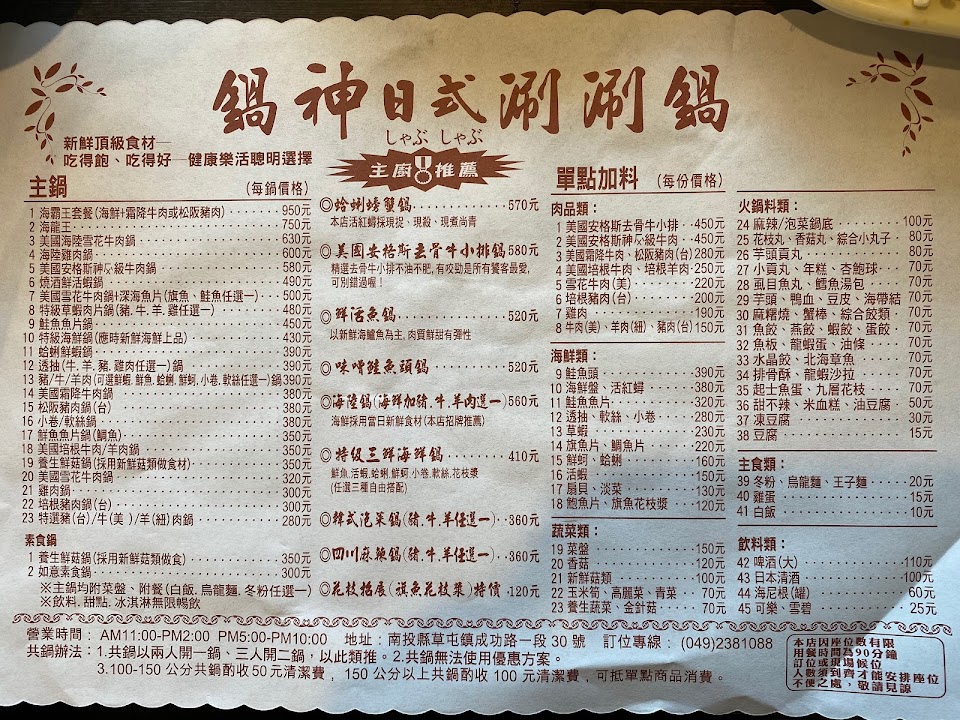 鍋神日式涮涮鍋
しゃぶ しゃぶ
新鮮頂級食材─
吃得飽、吃得好─健康樂活聰明選擇
主廚推薦
主鍋 (每鍋價格)
1 海霸王套餐(海鮮+霜降牛肉或松阪豬肉)·······950元
2 海龍王·······750元
3 美國海陸雪花牛肉鍋·······630元
4 海陸雞肉鍋·······600元
5 美國安格斯神級牛肉鍋·······580元
6 燒酒鮮活蝦鍋·······490元
7 美國雪花牛肉鍋+深海魚片(旗魚、鮭魚任選一)···500元
8 特級草蝦肉片鍋(豬.牛.羊.雞任選一)·······480元
9 鮭魚魚片鍋·······450元
10 特級海鮮鍋(應時新鮮海鮮上品)·······430元
11 蛤蜊鮮蝦鍋·······390元
12 透抽(牛.羊.豬.雞肉任選一)鍋·······390元
13 豬/牛/羊肉(可選鮮蝦.鮮魚.蛤蜊.鮮蚵.小卷.軟絲任選一)鍋390元
14 美國霜降牛肉鍋·······380元
15 松阪豬肉鍋(台)·······380元
16 小卷/軟絲鍋·······380元
17 鮮魚魚片鍋(鯛魚)·······350元
18 美國培根牛肉/羊肉鍋·······350元
19 養生鮮菇鍋(採用新鮮菇類做食材)·······350元
20 美國雪花牛肉鍋·······320元
21 雞肉鍋·······300元
22 培根豬肉鍋(台)·······300元
23 特選豬(台)/牛(美)/羊(紐)肉鍋·······280元
素食鍋
1 養生鮮菇鍋(採用新鮮菇類做食)·······350元
2 如意素食鍋·······300元
※主鍋均附菜盤、附餐(白飯.烏龍麵.冬粉任選一)
※飲料.甜點.冰淇淋無限暢飲
◎蛤蜊螃蟹鍋·······570元
本店活紅蟳採現捉、現殺、現煮尚青
◎美國安格斯去骨牛小排鍋580元
精選去骨牛小排不油不肥,有咬勁是所有饕客最愛,
可別錯過喔！
◎鮮活魚鍋·······520元
以新鮮海鱸魚為主.肉質鮮甜有彈性
◎味噌鮭魚頭鍋·······520元
◎海陸鍋(海鮮加豬.牛.羊肉選一)560元
海鮮採用當日新鮮食材(本店招牌推薦)
◎特級三鮮海鮮鍋·······410元
鮮魚.活蝦.蛤蜊.鮮蚵.小卷.軟絲.花枝漿
(任選三種自由搭配)
◎韓式泡菜鍋(豬.牛.羊任選一)··360元
◎四川麻辣鍋(豬.牛.羊任選一)··360元
◎花枝招展(旗魚花枝漿)特價··120元
單點加料 (每份價格)
肉品類：
1 美國安格斯去骨牛小排··450元
2 美國安格斯神級牛肉··450元
3 美國霜降牛肉、松阪豬肉(台)280元
4 美國培根牛肉、培根羊肉·250元
5 雪花牛肉(美)·······220元
6 培根豬肉(台)·······200元
7 雞肉·······190元
8 牛肉(美)、羊肉(紐)、豬肉(台)150元
海鮮類：
9 鮭魚頭·······390元
10 海鮮盤、活紅蟳·······380元
11 鮭魚魚片·······320元
12 透抽、軟絲、小卷·······280元
13 草蝦·······230元
14 旗魚片、鯛魚片·······220元
15 鮮蚵、蛤蜊·······160元
16 活蝦·······150元
17 扇貝、淡菜·······130元
18 鮑魚片、旗魚花枝漿···120元
蔬菜類：
19 菜盤·······150元
20 香菇·······120元
21 新鮮菇類·······100元
22 玉米筍、高麗菜、青菜··70元
23 養生蔬菜、金針菇·······70元
火鍋料類：
24 麻辣/泡菜鍋底·······100元
25 花枝丸、香菇丸、綜合小丸子··80元
26 芋頭貢丸·······80元
27 小貢丸、年糕、杏鮑球···70元
28 虱目魚丸、鱈魚湯包·······70元
29 芋頭、鴨血、豆皮、海帶結 70元
30 麻糬燒、蟹棒、綜合餃類··70元
31 魚餃、燕餃、蝦餃、蛋餃··70元
32 魚板、龍蝦蛋、油條·······70元
33 水晶餃、北海章魚·······70元
34 排骨酥、龍蝦沙拉·······70元
35 起士魚蛋、九層花枝·······70元
36 甜不辣、米血糕、油豆腐··50元
37 凍豆腐·······30元
38 豆腐·······15元
主食類：
39 冬粉、烏龍麵、王子麵··20元
40 雞蛋·······15元
41 白飯·······10元
飲料類：
42 啤酒(大)·······110元
43 日本清酒·······100元
44 海尼根(罐)·······60元
45 可樂、雪碧·······25元
營業時間： AM11:00-PM2:00 PM5:00-PM10:00 地址：南投縣草屯鎮成功路一段30號 訂位專線：(049)2381088
共鍋辦法：1.共鍋以兩人開一鍋、三人開二鍋，以此類推。2.共鍋無法使用優惠方案。
3.100-150公分共鍋酌收50元清潔費，150公分以上共鍋酌收100元清潔費，可抵單點商品消費。
本店因座位數有限
用餐時間為90分鐘
訂位或現場候位
人數須到齊才能安排座位
不便之處，敬請見諒